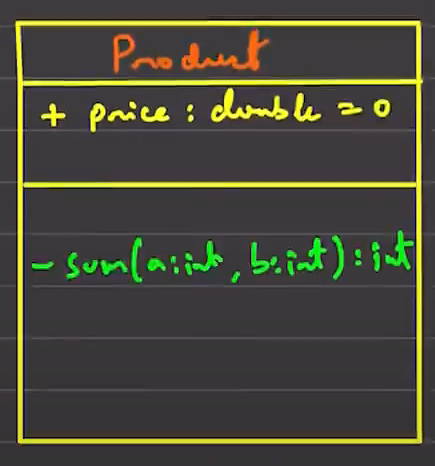 Product
+ price : double = 0
- sum(a:int, b:int) : int